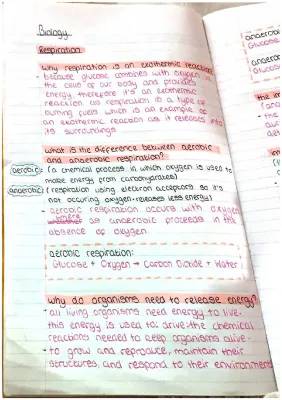 Biology
Respiration
why respiration is an exothermic reaction
- because glucose combines with oxygen in
the cells of our body and provides
energy therefore it's an exothermic
reaction as respiration is a type of
burning fuels which is an example of
an exothermic reaction as it releases into
its surroundings
what is the difference between aerobic
and anaerobic respiration?
aerobic: (a chemical process in which oxygen is used to
make energy from carbohydrates)
anaerobic: (respiration using electron acceptors so it's
not occuring oxygen - releases less energy)
- aerobic respiration occurs with oxygen
as anaerobic processes in the
absence of oxygen
aerobic respiration:
Glucose + Oxygen → Carbon Dioxide + Water
why do organisms need to release energy?
- all living organisms need energy to live.
this energy is used to: drive the chemical
reactions needed to keep organisms alive -
- to grow and reproduce, maintain their
structures, and respond to their environments
anaerobic
Glucose
anaerobic
Glucose